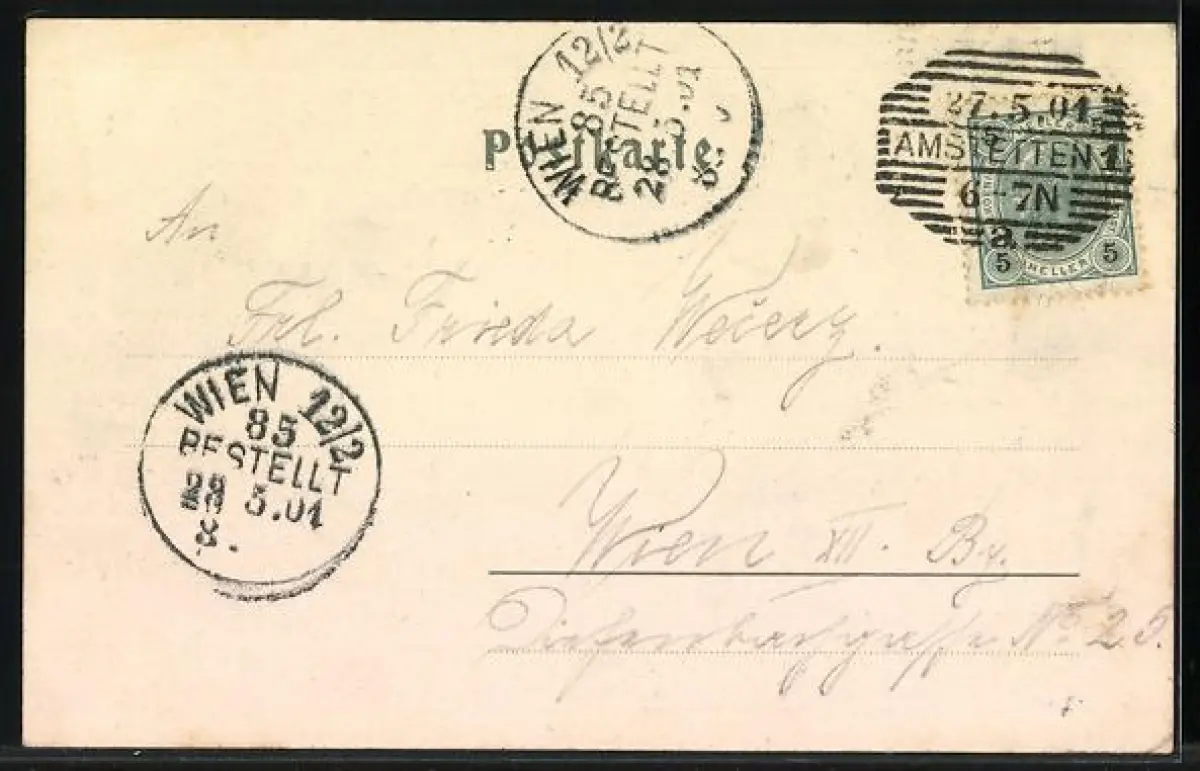 Postkarte.
WIEN 12/2
85
BESTELLT
28.5.01
8.
27.5.01
AMSTETTEN 1
6-7N
a
5 HELLER 5
An
Frl. Frieda Večerz.
WIEN 12/2
85
BESTELLT
28 5.01
8.
Wien XII. Bz.
Diefenbachgasse No 25.